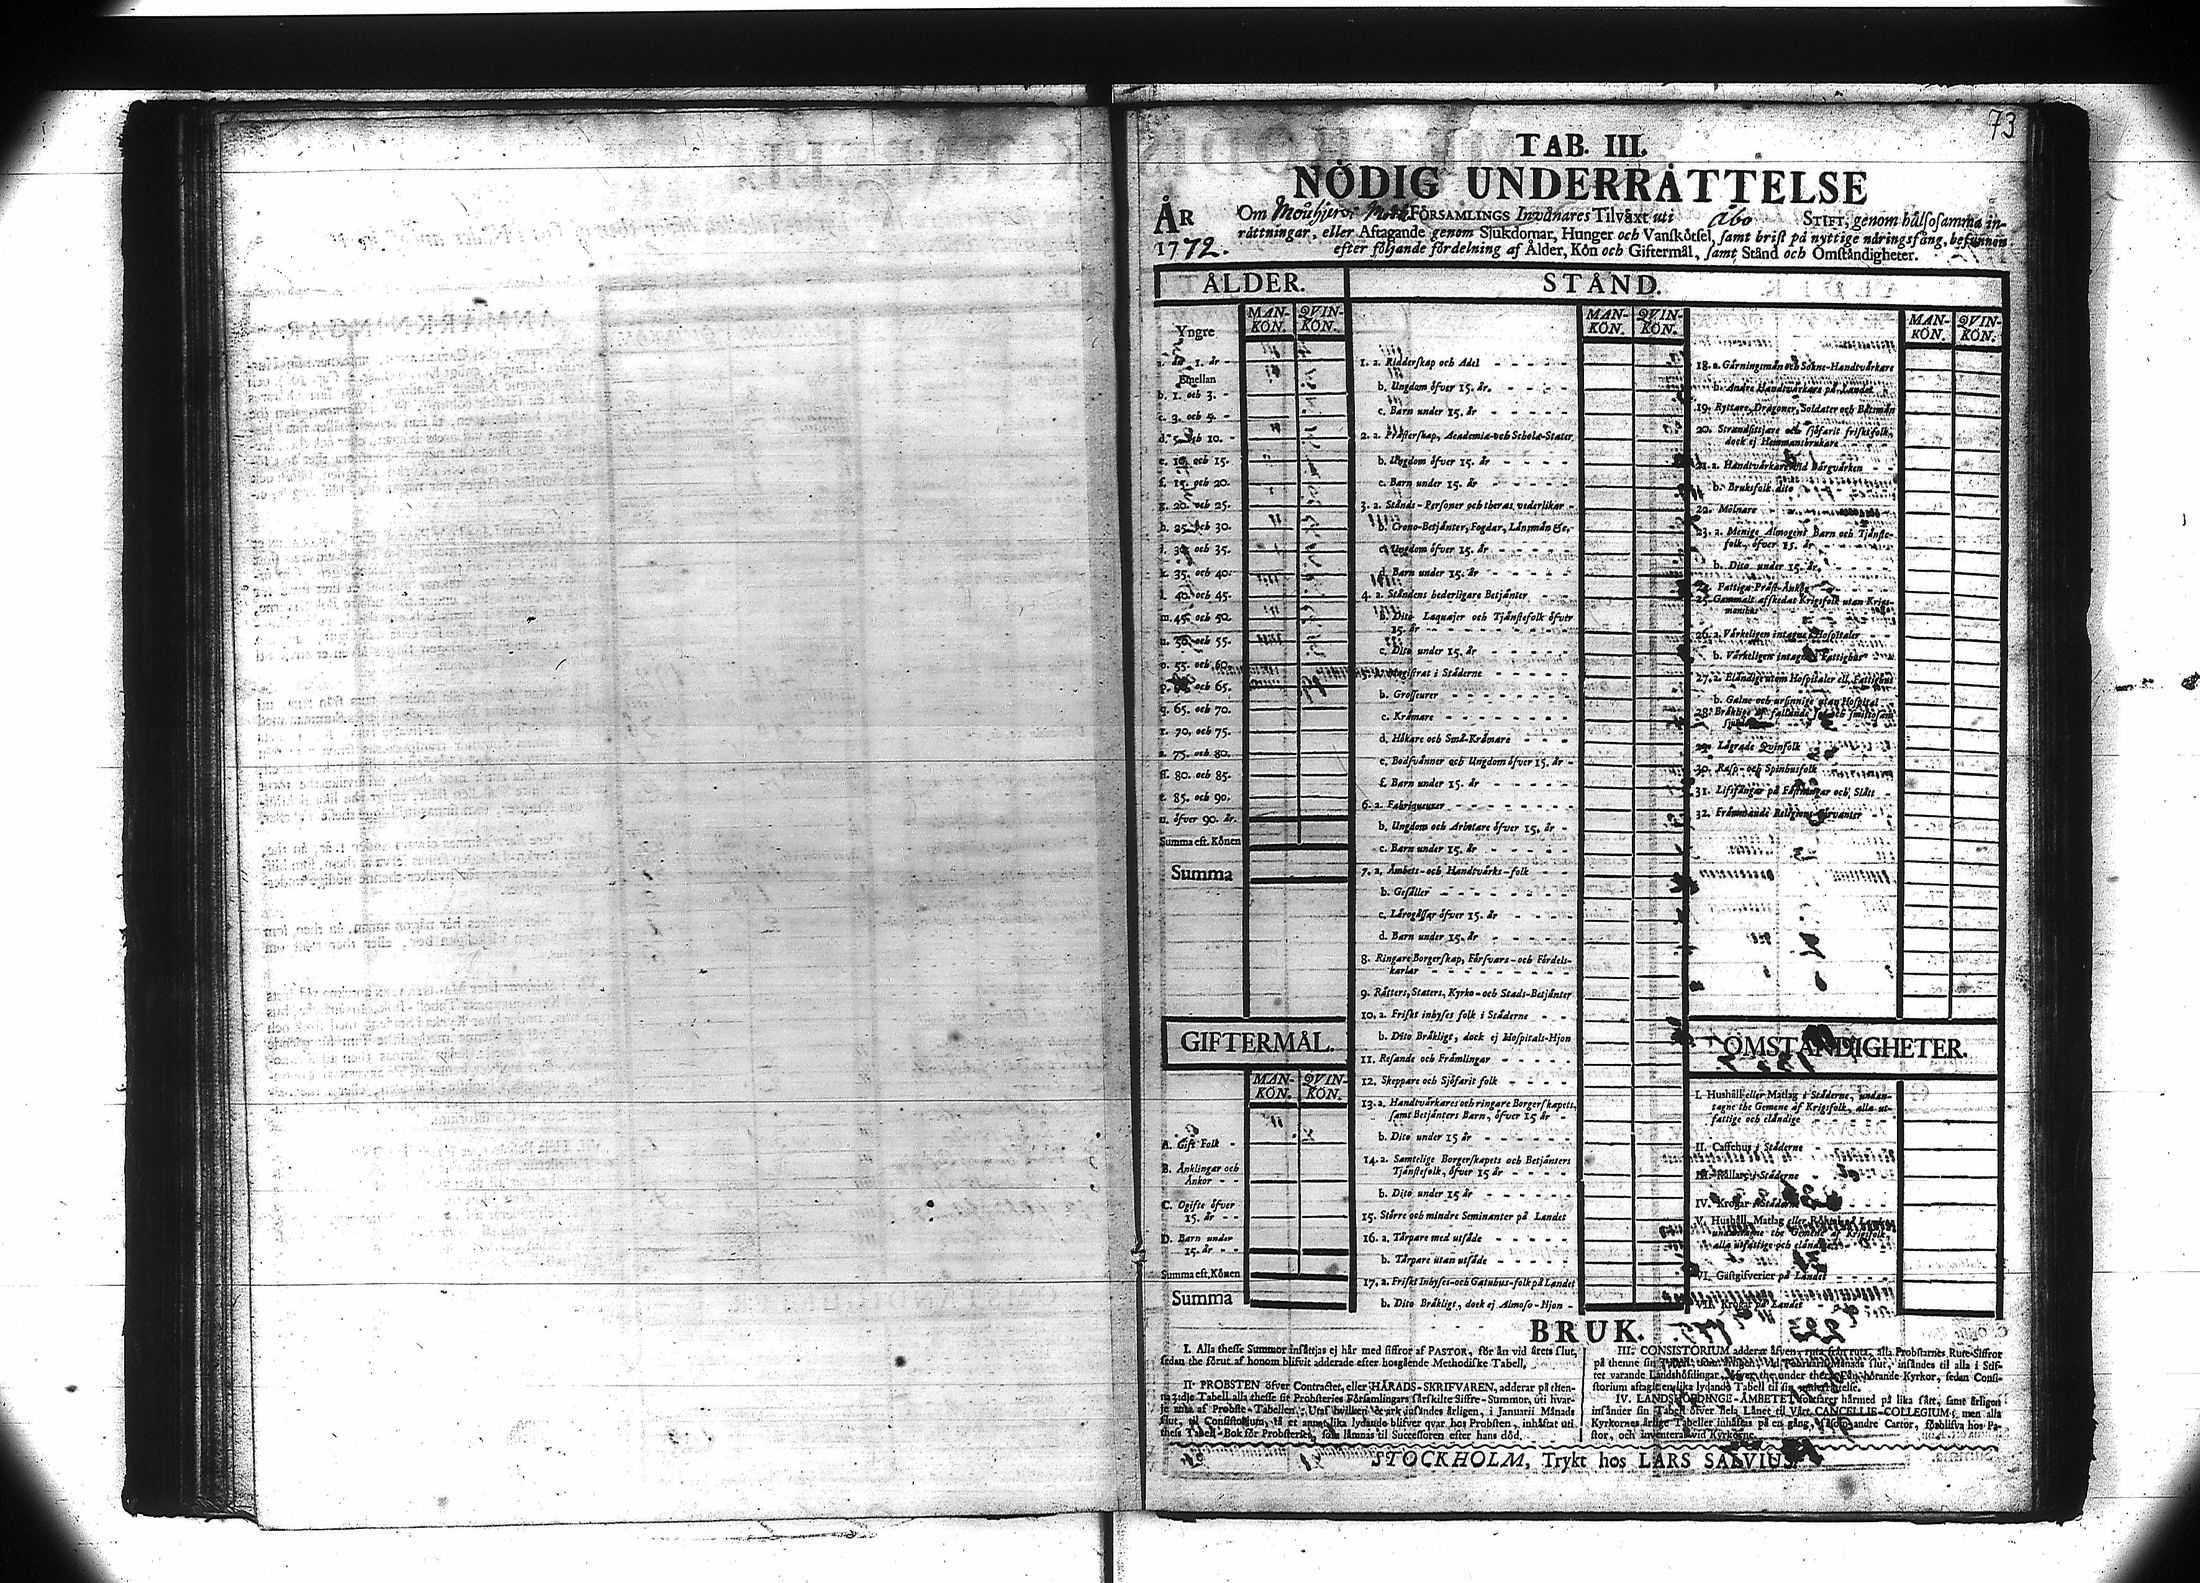 73
TAB. III.
NÖDIG UNDERRÄTTELSE
ÅR 1772.
Om Mouhijerfvi FÖRSAMLINGS Invånares Tilväxt uti Åbo STIFT, genom hälsosamma in-
rättningar, eller Aftagande genom Sjukdomar, Hunger och Vanskötsel, samt brist på nyttige näringsfång, befunnen
efter följande fördelning af Ålder, Kön och Giftermål, samt Stånd och Omständigheter.
ÅLDER.
MAN-KÖN. QVIN-KÖN.
Yngre
a. än 1. år -
Emellan
b. 1. och 3. -
c. 3. och 5. -
d. 5. och 10. -
e. 10. och 15.
f. 15. och 20.
g. 20. och 25.
h. 25. och 30.
i. 30. och 35.
k. 35. och 40.
l. 40. och 45.
m. 45. och 50.
n. 50. och 55.
o. 55. och 60.
p. 60. och 65.
q. 65. och 70.
r. 70. och 75.
s. 75. och 80.
ss. 80. och 85.
t. 85. och 90.
u. öfver 90. år.
Summa eft. Könen
Summa
GIFTERMÅL.
MAN-KÖN. QVIN-KÖN.
A. Gift Folk -
B. Änklingar och
Änkor - -
C. Ogifte öfver
15. år - -
D. Barn under
15. år - -
Summa eft. Könen
Summa
STÅND.
MAN-KÖN. QVIN-KÖN.
1. a. Ridderskap och Adel
b. Ungdom öfver 15. år.
c. Barn under 15. år
2. a. Prästerskap, Academiæ- och Scholæ-Stater
b. Ungdom öfver 15. år
c. Barn under 15. år
3. a. Stånds-Personer och theras vederlikar -
b. Crono-Betjänter, Fogdar, Länsmän &c.
c. Ungdom öfver 15. år
d. Barn under 15. år
4. a. Ståndens hederligare Betjänter
b. Dito Laquajer och Tjänstefolk öfver
15. år
c. Dito under 15. år
5. a. Magistrat i Städerne
b. Grosseurer
c. Krämare
d. Hökare och Små-Krämare
e. Bodsvänner och Ungdom öfver 15. år -
f. Barn under 15. år
6. a. Fabriqueurer
b. Ungdom och Arbetare öfver 15. år -
c. Barn under 15. år
7. a. Ämbets- och Handtvärks-folk
b. Gesäller
c. Lärogåssar öfver 15. år
d. Barn under 15. år
8. Ringare Borgerskap, Försvars- och Fördels-
karlar
9. Rätters, Staters, Kyrko- och Stads-Betjänter
10. a. Friskt inhyses folk i Städerne
b. Dito Bräkligt, dock ej Hospitals-Hjon
11. Resande och Främlingar
12. Skeppare och Sjöfarit folk
13. a. Handtvärkares och ringare Borgerskapets,
samt Betjänters Barn, öfver 15 år
b. Dito under 15 år
14. a. Samtelige Borgerskapets och Betjänters
Tjänstefolk, öfver 15 år
b. Dito under 15 år
15. Större och mindre Seminanter på Landet
16. a. Tårpare med utsäde
b. Tårpare utan utsäde
17. a. Friskt Inhyses- och Gatuhus-folk på Landet
b. Dito Bräkligt, dock ej Almoso-Hjon -
MAN-KÖN. QVIN-KÖN.
18. a. Gärningsmän och Sokne-Handtvärkare
b. Andre Handtvärkare på Landet
19. Ryttare, Dragoner, Soldater och Båtsmän
20. Strandsittjare och sjöfarit friskt folk,
dock ej Hemmansbrukare
21. a. Handtvärkare vid Bärgvärken
b. Bruksfolk dito
22. Mölnare
23. a. Menige Almogens Barn och Tjänste-
folk, öfver 15. år
b. Dito under 15. år.
24. Fattiga Präst-Änkor
25. Gammalt afskedat Krigsfolk utan Krigs-
manshus
26. a. Värkeligen intagne i Hospitaler
b. Värkeligen intagne i Fattighus
27. a. Eländige utom Hospitaler ell. Fattighus
b. Galne och ursinnige utan Hospital
28. Bräklige af fallande sot och smittosam
29. Lägrade Qvinfolk
30. Rasp- och Spinhusfolk
31. Lifsfångar på Fästningar och Slått
32. Främmande Religions-förvanter
OMSTÄNDIGHETER.
I. Hushåll eller Matlag i Städerne, undan-
tagne the Gemene af Krigsfolk, alla ut-
fattige och eländige
II. Caffehus i Städerne
III. Källare i Städerne
IV. Krogar i Städerne
V. Hushåll, Matlag eller Rökar på Landet
undantagne the Gemene af Krigsfolk
alla utfattige och eländige
VI. Gästgifverier på Landet
VII. Krogar på Landet
BRUK.
I. Alla thesse Summor insättjas ej här med siffror af PASTOR, för än vid årets slut,
sedan the förut af honom blifvit adderade efter hosgående Methodiske Tabell,
II. PROBSTEN öfver Contractet, eller HÄRADS-SKRIFVAREN, adderar på then-
na 3dje Tabell alla thesse sit Probsteries Församlingars särskilte Siffre-Summor, uti hvar-
je ruta af Probste-Tabellen; Utaf hvilken et ark insändes årligen, i Januarii Månads
slut, til Consistorium, så et annat lika lydande blifver qvar hos Probsten, inhäftat uti
thess Tabell-Bok för Probsteriet, som lämnas til Successoren efter hans död.
III. CONSISTORIUM adderar äfven, ruta från ruta, alla Probstarnes Rute-Siffror
på thenne sin Tabell, som årligen, vid Februarii Månads slut, insändes til alla i Stif-
tet varande Landshöfdingar, öfver the under them hörande Kyrkor, sedan Consi-
storium aftagit en lika lydande Tabell til sin underrättelse.
IV. LANDSHÖFDINGE-ÄMBETET förfar härmed på lika sätt, samt årligen
insänder sin Tabell öfver hela Länet til Vårt CANCELLIE-COLLEGIUM; men alla
Kyrkornes årlige Tabeller inhäftas på en gång, såsom andre Cartor, förblifva hos Pa-
stor, och inventeras vid Kyrkorne.
STOCKHOLM, Trykt hos LARS SALVIUS.